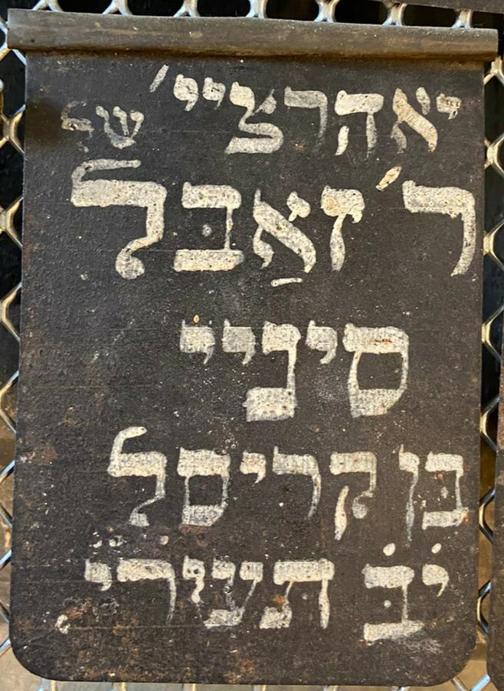 יאהרציי' של
ר' זאַבּל
סיניי
בן קריסל
י̇ב̇ תשרי